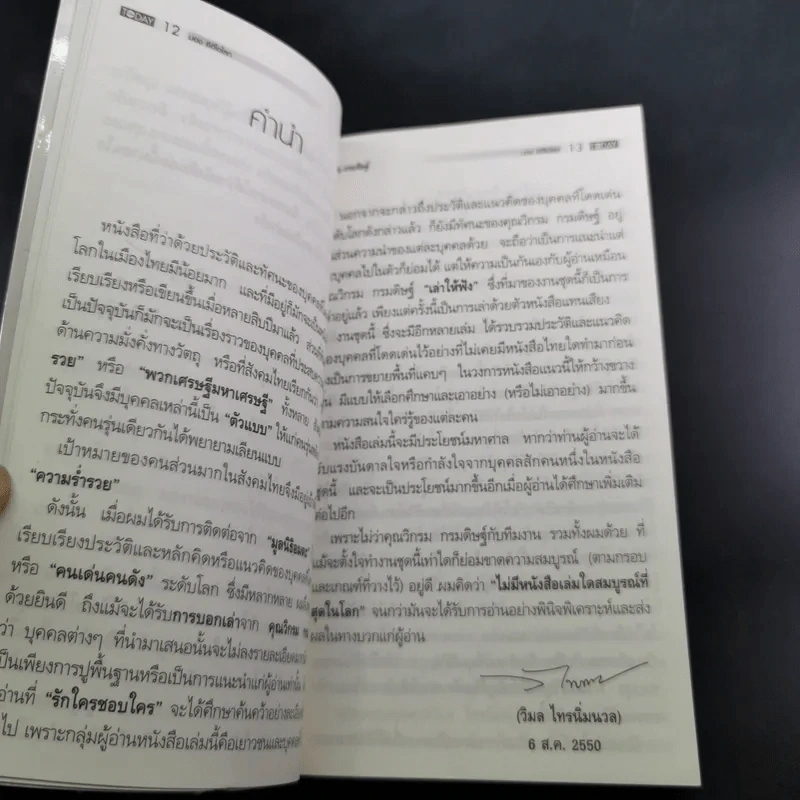 TODAY 12 มอง ซีอีโอโลก
คำนำ
หนังสือที่ว่าด้วยประวัติและทัศนะของบุคคล
โลกในเมืองไทยมีน้อยมาก และที่มีอยู่ก็มักจะเป็น
เรียบเรียงหรือเขียนขึ้นเมื่อหลายสิบปีมาแล้ว
เป็นปัจจุบันก็มักจะเป็นเรื่องราวของบุคคลที่ประสบ
ด้านความมั่งคั่งทางวัตถุ หรือที่สังคมไทยเรียกกัน
รวย” หรือ “พวกเศรษฐีมหาเศรษฐี” ทั้งหลาย
ปัจจุบันจึงมีบุคคลเหล่านี้เป็น “ตัวแบบ” ให้แก่คน
กระทั่งคนรุ่นเดียวกันได้พยายามเลียนแบบ
เป้าหมายของคนส่วนมากในสังคมไทยจึงมีอยู่
“ความร่ำรวย”
ดังนั้น เมื่อผมได้รับการติดต่อจาก “มูลนิธิ
เรียบเรียงประวัติและหลักคิดหรือแนวคิดของบุคคล
หรือ “คนเด่นคนดัง” ระดับโลก ซึ่งมีหลากหลาย
ด้วยยินดี ถึงแม้จะได้รับการบอกเล่าจาก คุณวิกรม
ว่า บุคคลต่างๆ ที่นำมาเสนอนั้นจะไม่ลงรายละเอียด
เป็นเพียงการปูพื้นฐานหรือเป็นการแนะนำแก่ผู้อ่านเท่านั้น
อ่านที่ “รักใครชอบใคร” จะได้ศึกษาค้นคว้าอย่าง
ไป เพราะกลุ่มผู้อ่านหนังสือเล่มนี้คือเยาวชนและ
13
นอกจากจะกล่าวถึงประวัติและแนวคิดของบุคคลที่โดดเด่น
ดับโลกดังกล่าวแล้ว ก็ยังมีทัศนะของคุณวิกรม กรมดิษฐ์ อยู่
ส่วนความนำของแต่ละบุคคลด้วย จะถือว่าเป็นการแนะนำแต่
บุคคลไปในตัวก็ย่อมได้ แต่ให้ความเป็นกันเองกับผู้อ่านเหมือน
คุณวิกรม กรมดิษฐ์ “เล่าให้ฟัง” ซึ่งที่มาของงานชุดนี้ก็เป็นการ
อยู่แล้ว เพียงแต่ครั้งนี้เป็นการเล่าด้วยตัวหนังสือแทนเสียง
งานชุดนี้ ซึ่งจะมีอีกหลายเล่ม ได้รวบรวมประวัติและแนวคิด
ของบุคคลที่โดดเด่นไว้อย่างที่ไม่เคยมีหนังสือไทยใดทำมาก่อน
จึงเป็นการขยายพื้นที่แคบๆ ในวงการหนังสือแนวนี้ให้กว้างขวาง
มีแบบให้เลือกศึกษาและเอาอย่าง (หรือไม่เอาอย่าง) มากขึ้น
ตามความสนใจใคร่รู้ของแต่ละคน
หนังสือเล่มนี้จะมีประโยชน์มหาศาล หากว่าท่านผู้อ่านจะได้
รับแรงบันดาลใจหรือกำลังใจจากบุคคลสักคนหนึ่งในหนังสือ
ชุดนี้ และจะเป็นประโยชน์มากขึ้นอีกเมื่อผู้อ่านได้ศึกษาเพิ่มเติม
ต่อไปอีก
เพราะไม่ว่าคุณวิกรม กรมดิษฐ์กับทีมงาน รวมทั้งผมด้วย ที่
แม้จะตั้งใจทำงานชุดนี้เท่าใดก็ย่อมขาดความสมบูรณ์ (ตามกรอบ
และเกณฑ์ที่วางไว้) อยู่ดี ผมคิดว่า “ไม่มีหนังสือเล่มใดสมบูรณ์ที่
สุดในโลก” จนกว่ามันจะได้รับการอ่านอย่างพินิจพิเคราะห์และส่ง
ผลในทางบวกแก่ผู้อ่าน
(วิมล ไทรนิ่มนวล)
6 ส.ค. 2550